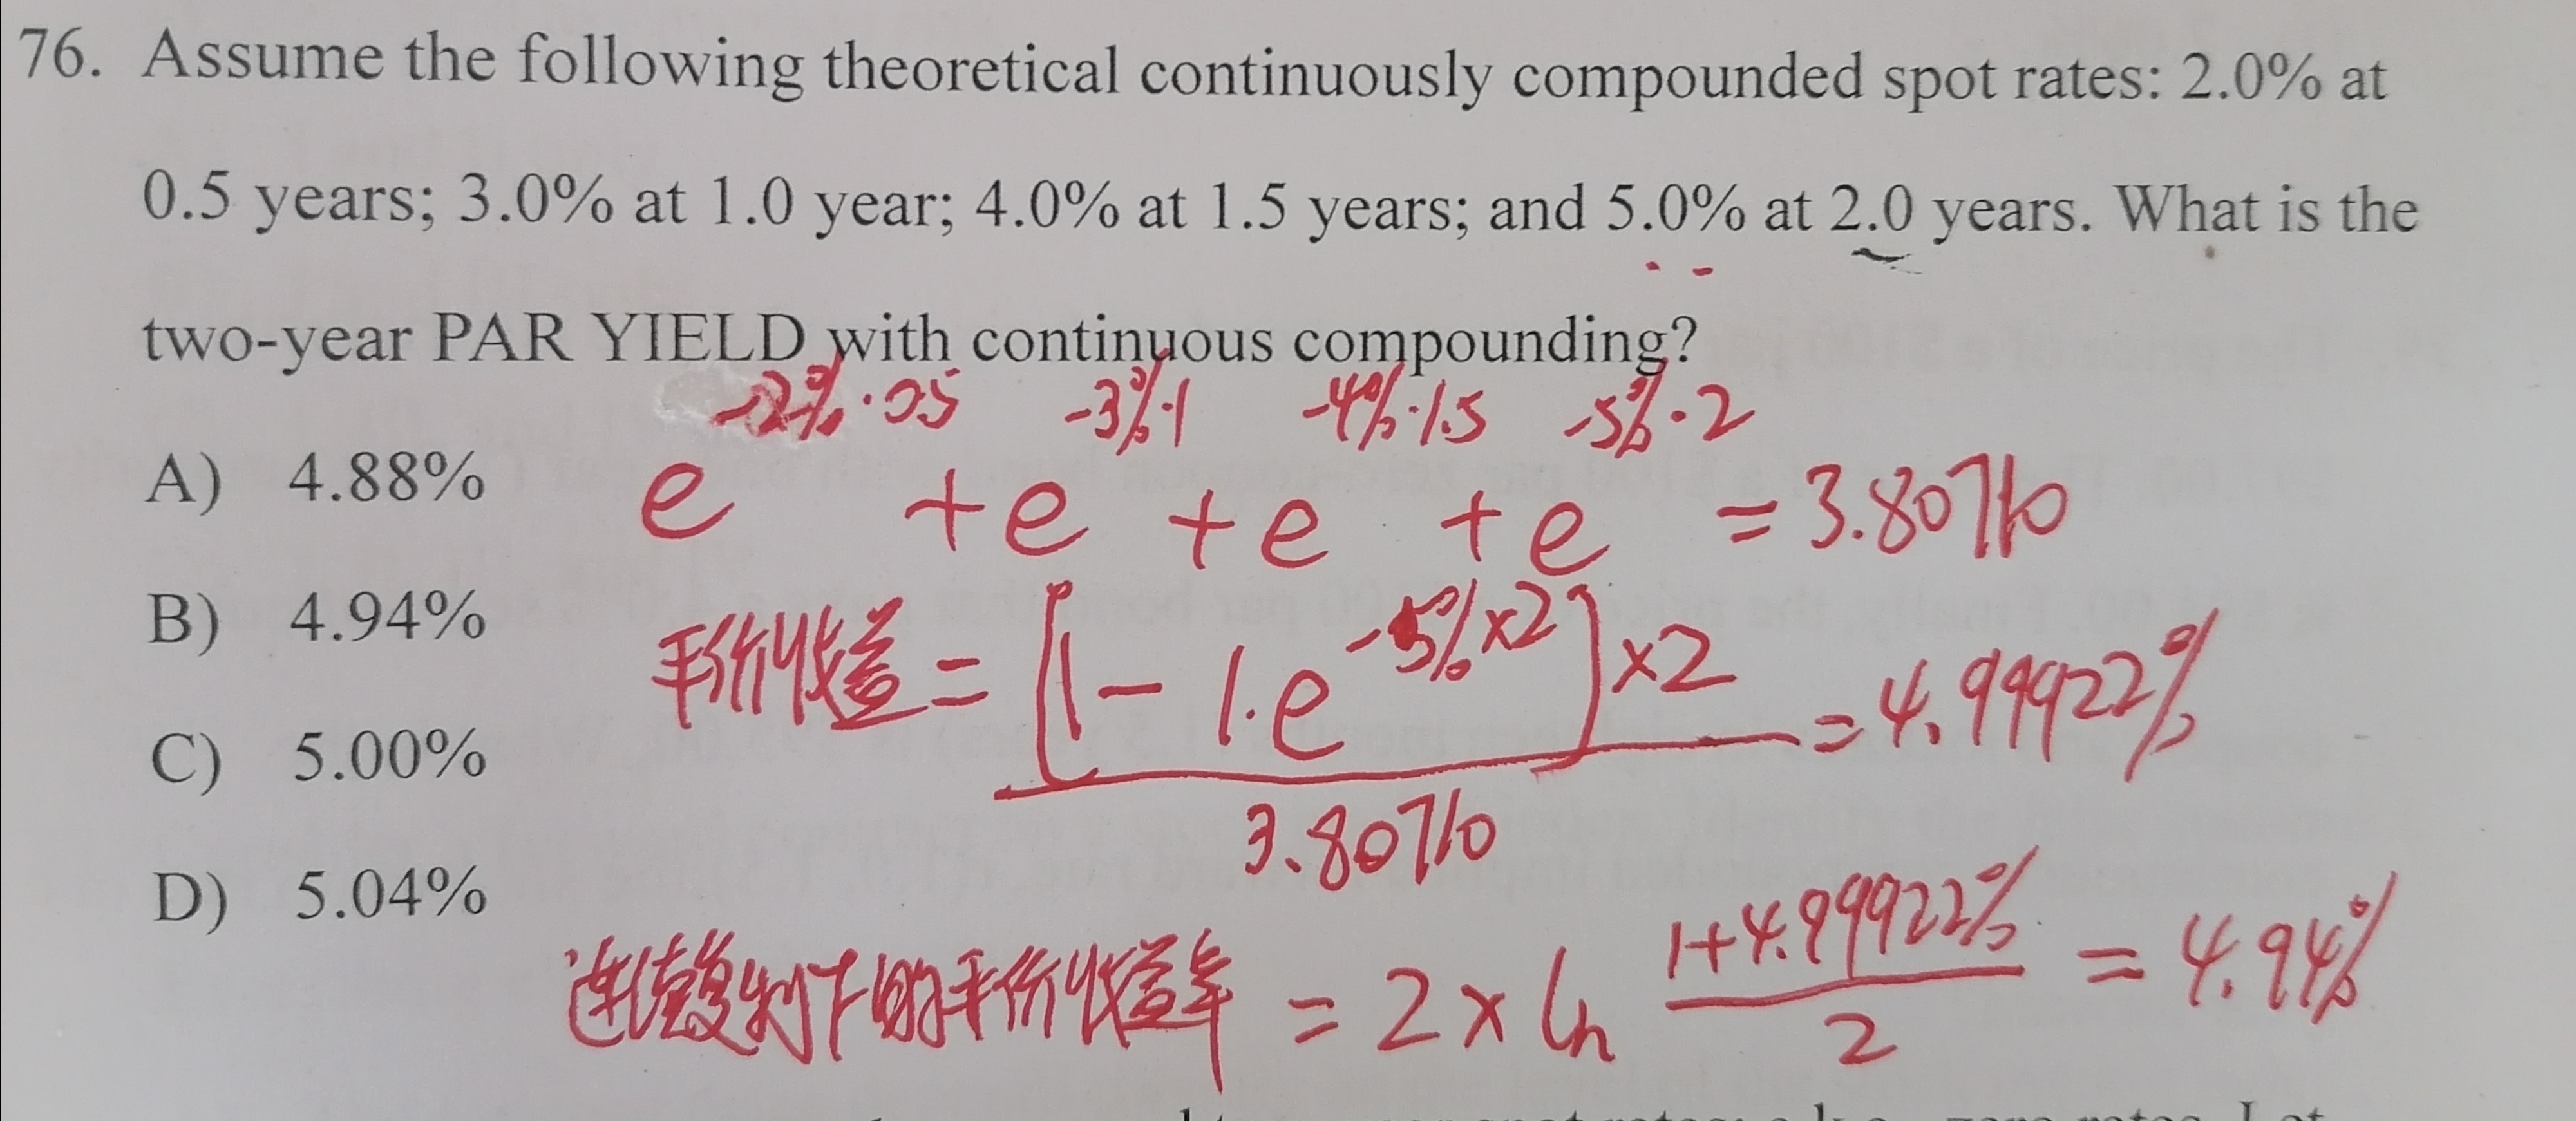 76. Assume the following theoretical continuously compounded spot rates: 2.0% at
0.5 years; 3.0% at 1.0 year; 4.0% at 1.5 years; and 5.0% at 2.0 years. What is the
two-year PAR YIELD with continuous compounding?
-2%·0.5 -3%·1 -4%·1.5 -5%·2
A) 4.88%
e +e +e +e =3.80710
B) 4.94%
平价收益=[1-1·e^-5%×2]×2 =4.99922%
C) 5.00%
3.80710
D) 5.04%
连续复利下的平价收益率 = 2×ln 1+4.99922% = 4.94%
2